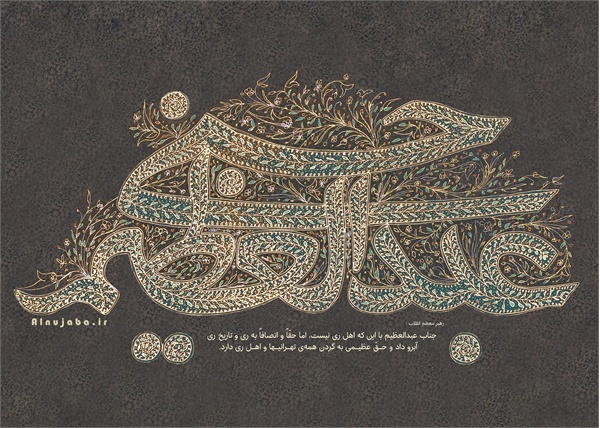 عبدالعظیم
رهبر معظم انقلاب :
جناب عبدالعظیم با این که اهل ری نیست، اما حقّاً و انصافاً به ری و تاریخ ری
آبرو داد و حـق عظیـمی به گردن همه‌ی تهـرانیـها و اهـل ری دارد.
Alnujaba.ir